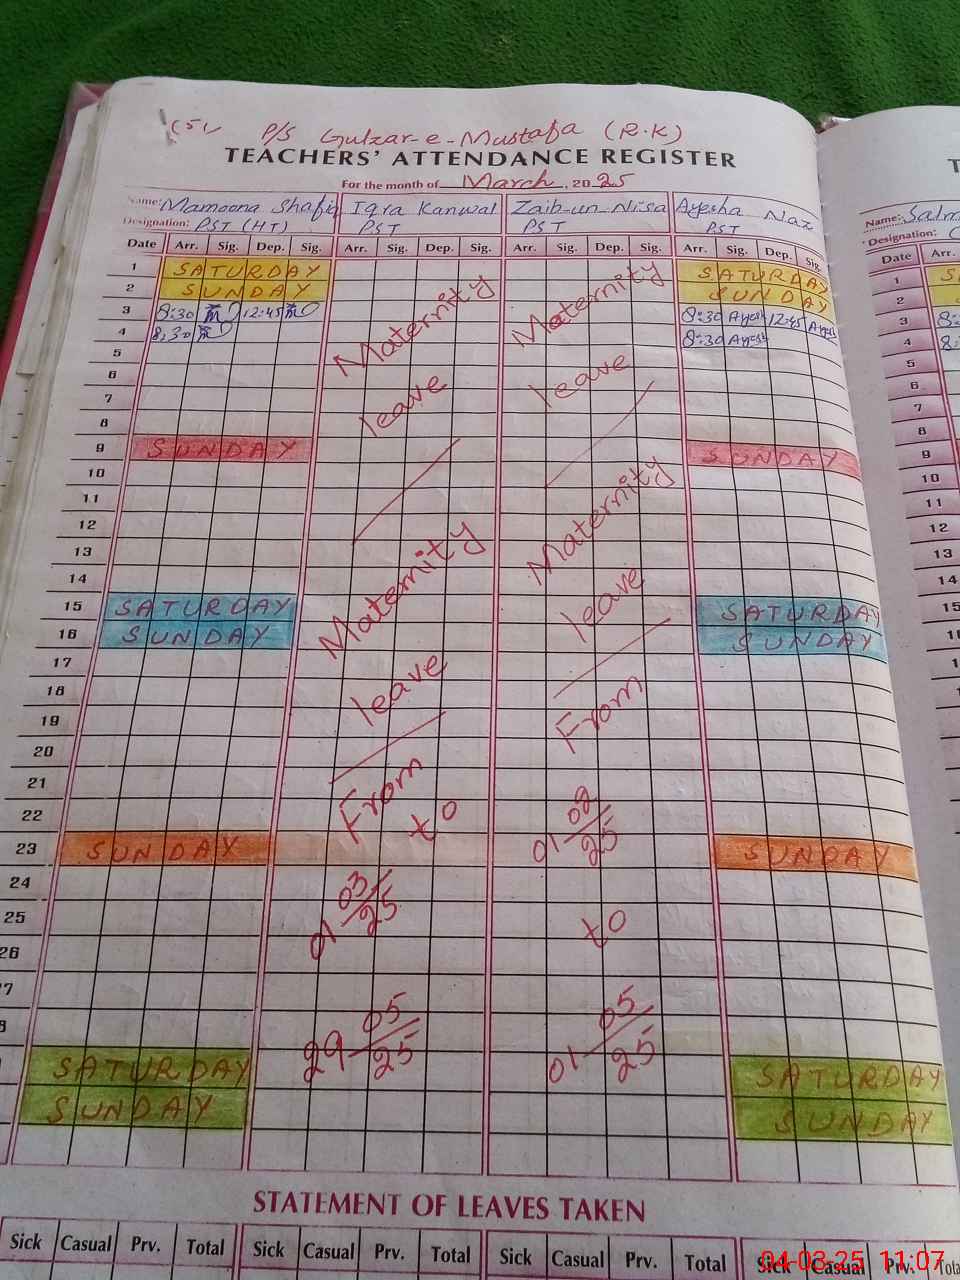 P/S Gulzar-e-Mustafa (R.K)
TEACHERS' ATTENDANCE REGISTER
For the month of March, 2025
Name: Mamoona Shafiq Iqra Kanwal Zaib-un-Nisa Ayesha Naz
Designation: PST (HT) PST PST PST
Date Arr. Sig. Dep. Sig. Arr. Sig. Dep. Sig. Arr. Sig. Dep. Sig. Arr. Sig. Dep. Sig.
1 SATURDAY SATURDAY
2 SUNDAY SUNDAY
3 8:30 12:45 8:30 Ayesh 12:45 Ayesh
4 8:30 8:30 Ayesh
5
6
7
8
9 SUNDAY SUNDAY
10
11
12
13
14
15 SATURDAY SATURDAY
16 SUNDAY SUNDAY
17
18
19
20
21
22
23 SUNDAY SUNDAY
24
25
26
SATURDAY SATURDAY
SUNDAY SUNDAY
Maternity
leave
Maternity
leave
From
to
01 03/25
29 05/25
Maternity
leave
Maternity
leave
From
01 02/25
to
01 05/25
STATEMENT OF LEAVES TAKEN
Sick Casual Prv. Total Sick Casual Prv. Total Sick Casual Prv. Total Sick Casual Prv.
Name: Salm
Designation:
Date Arr.
1
2
3
4
5
6
7
8
9
10
11
12
13
14
15
04-03-25 11:07